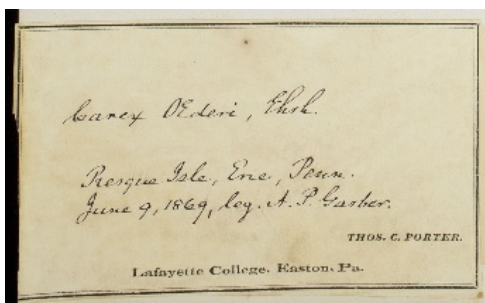 Carex Œderi, Ehrh.
Presque Isle, Erie, Penn.
June 9, 1869, leg. A. P. Garber.
THOS. C. PORTER.
Lafayette College, Easton, Pa.